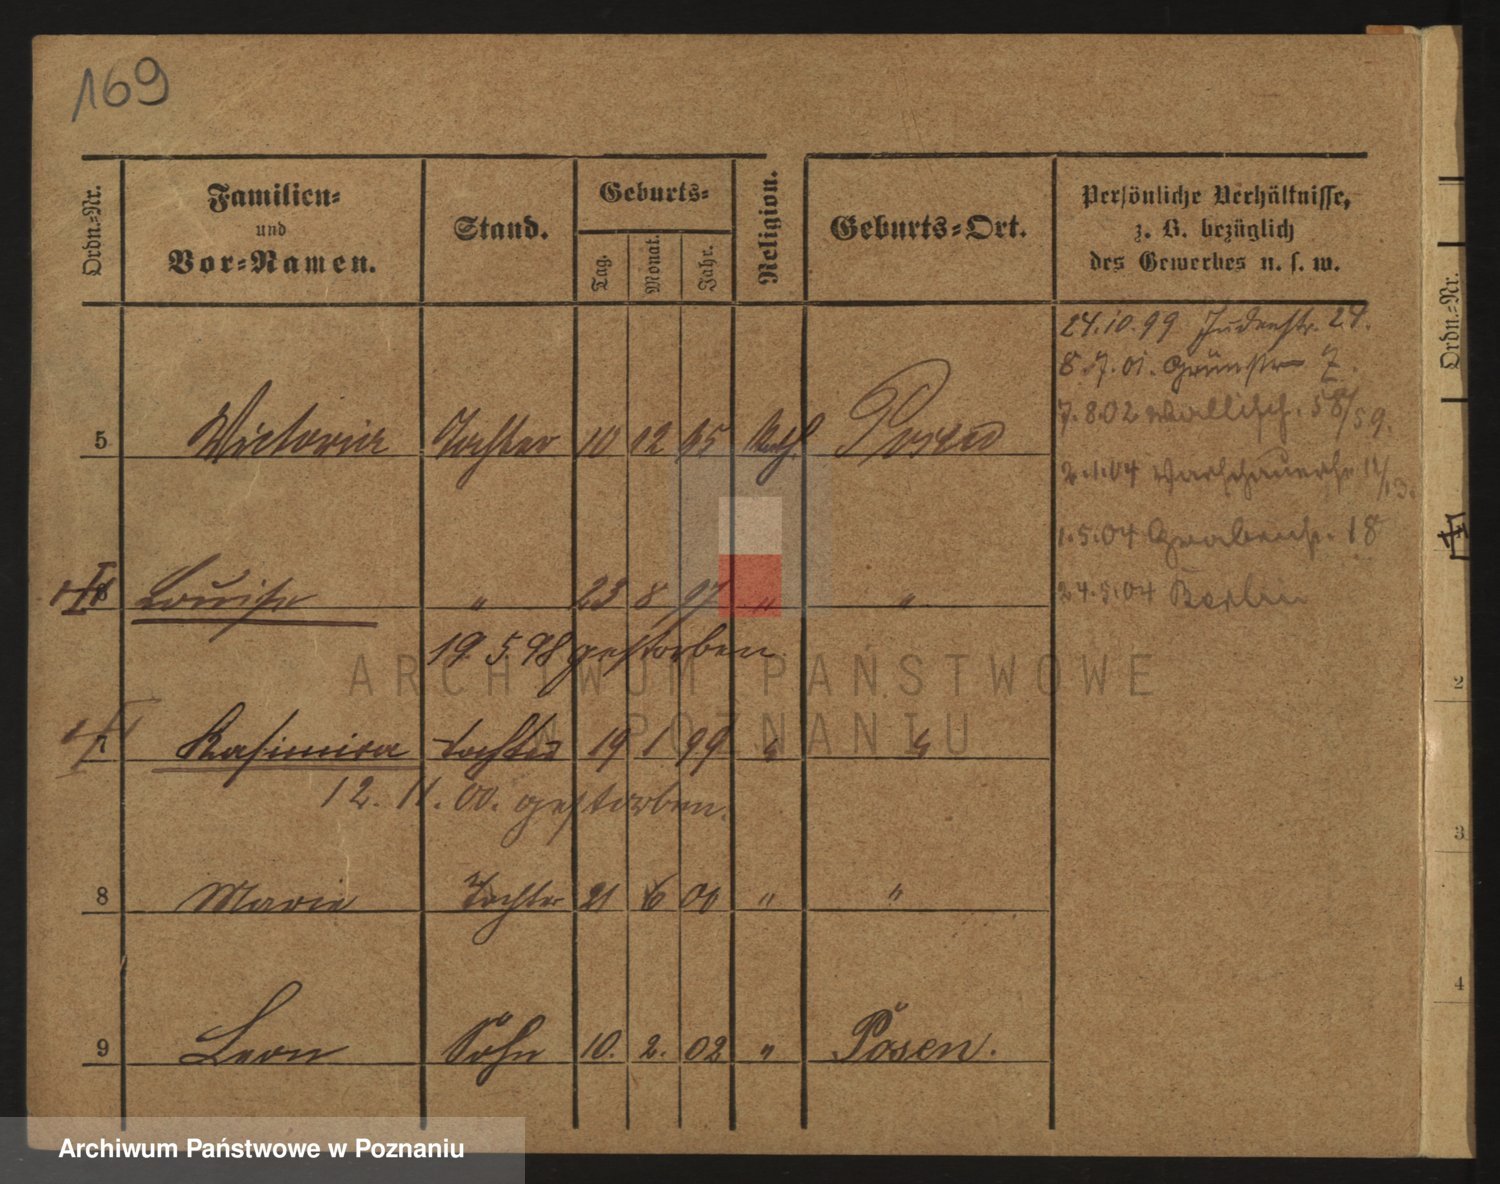 169
Ordn.-Nr.
Familien-
und
Vor-Namen.
Stand.
Geburts-
Tag.
Monat.
Jahr.
Religion.
Geburts-Ort.
Persönliche Verhältnisse,
z. B. bezüglich
des Gewerbes u. s. w.
24.10.99 Judenstr. 24.
8.7.01. Grünstr 7.
7.8.02 Wallisch. 58/59.
2.1.04 Warschauerstr 11/13.
1.5.04 Grabenstr. 18
24.5.04 Berlin
5 Victoria Tochter 10 12 95 Kath. Posen
6 Louise " 23 8 97 " "
19. 5. 98 gestorben
7 Kasimira Tochter 19 1 99 " "
12. 11. 00. gestorben.
8 Marie Tochter 21 6 00 " "
9 Leon Sohn 10. 2. 02 " Posen.
Ordn.-Nr.
2
3
4
ARCHIWUM PAŃSTWOWE
W POZNANIU
Archiwum Państwowe w Poznaniu